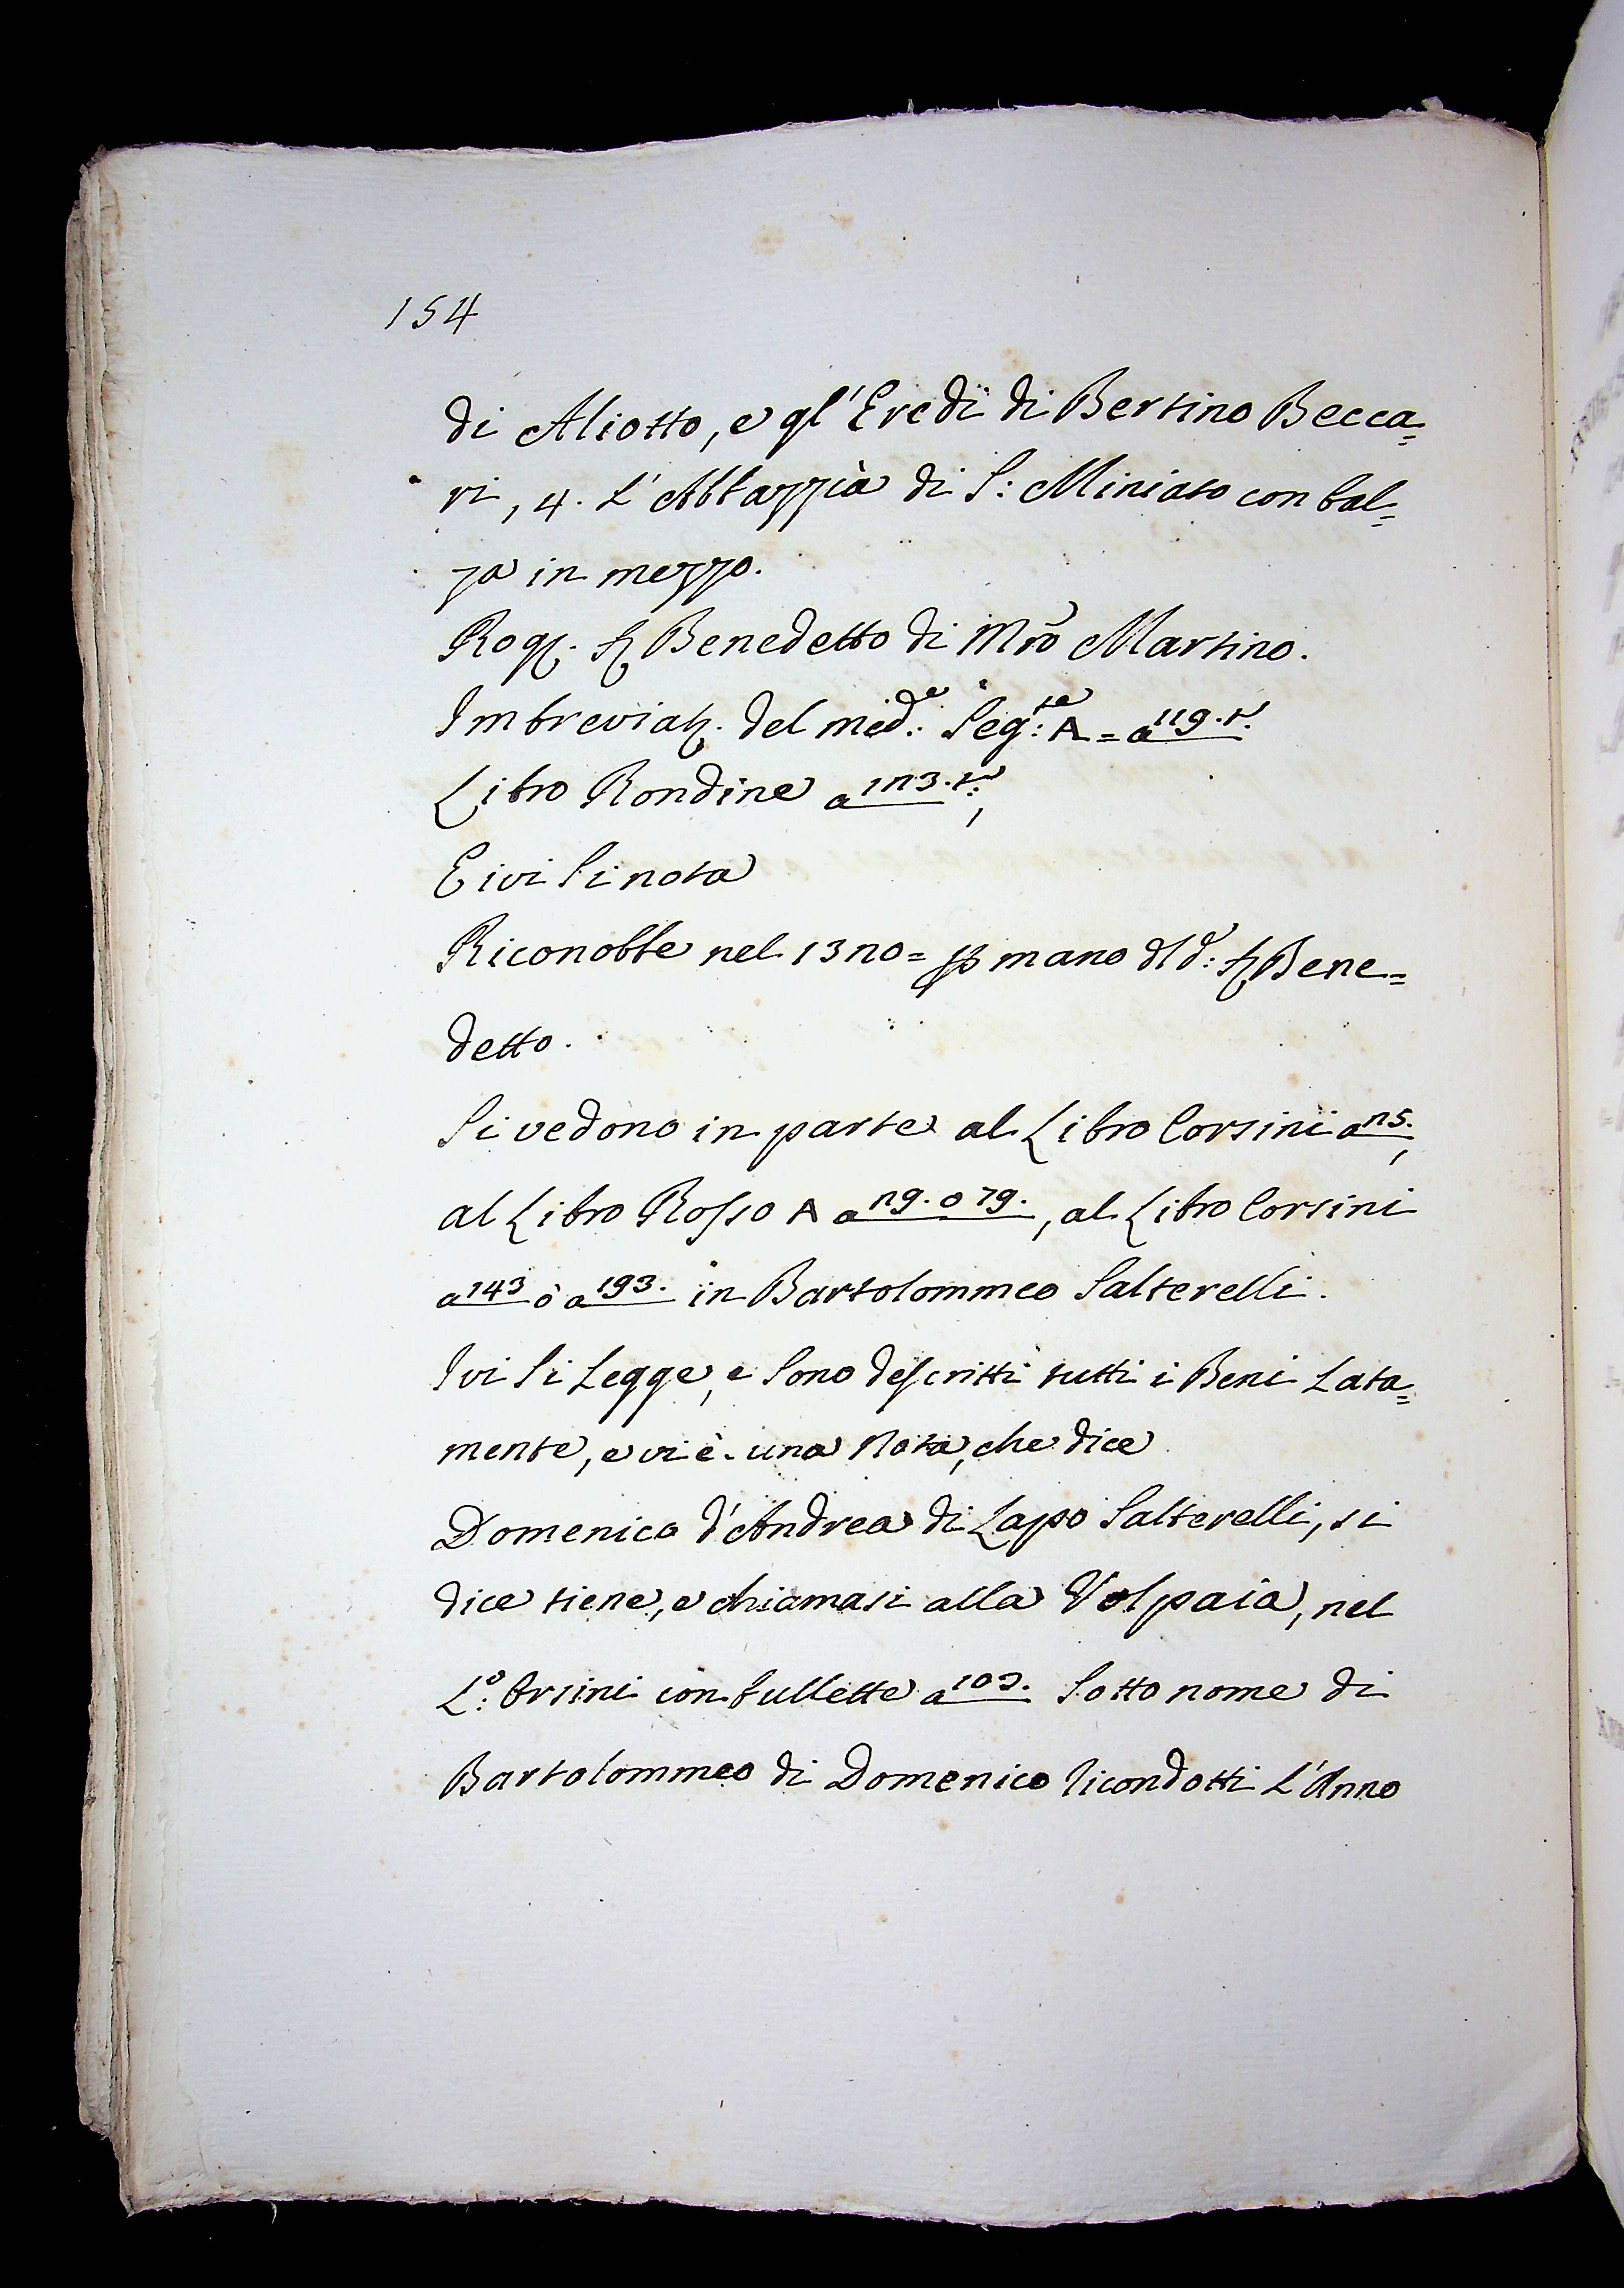 154
di Aliotto, e gl'Eredi di Bertino Becca=
ri, 4. L'Abbazzia di S: Miniato con bal=
za in mezzo.
Rog. Benedetto di Mrõ Martino.
Imbreviaz. del med.º Seg:te A = a 119. t.
Libro Rondine a 173. t:,
E ivi Si nota
Riconobbe nel 1370= p mano dld: Bene=
detto.
Si vedono in parte al Libro Corsini a 75.,
al Libro Rosso A a 79. o 79., al Libro Corsini
a 143 ò a 193. in Bartolommeo Salterelli.
Ivi Si Legge, e Sono descritti tutti i Beni Lata=
mente, e vi è una Nota, che dice
Domenico d'Andrea di Lapo Salterelli, si
dice tiene, e chiamasi alla Volpaia, nel
L:º Orsini con bullette a 103. Sotto nome di
Bartolommeo di Domenico Ticondotti L'Anno